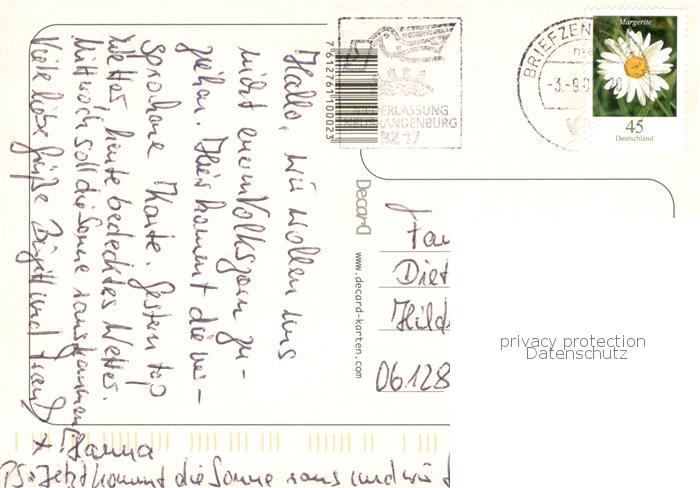 Hallo, wir wollen uns
nicht euren Volkszorn zu-
ziehen. Hier kommt die ver-
sprochene Karte. Gestern top
Wetter, heute bedecktes Wetter.
Mittwoch soll die Sonne rauskommen
Viele liebe Grüße Birgitt und Frank
+ Hanna
PS: Jetzt kommt die Sonne raus und wir
7612761100023
Decard
www.decard-karten.com
NIEDERLASSUNG
NEUBRANDENBURG
BZ 17
BRIEFZEN
-3.-9.0
Margerite
45
Deutschland
Fam
Diet
Hild
06128
privacy protection
Datenschutz